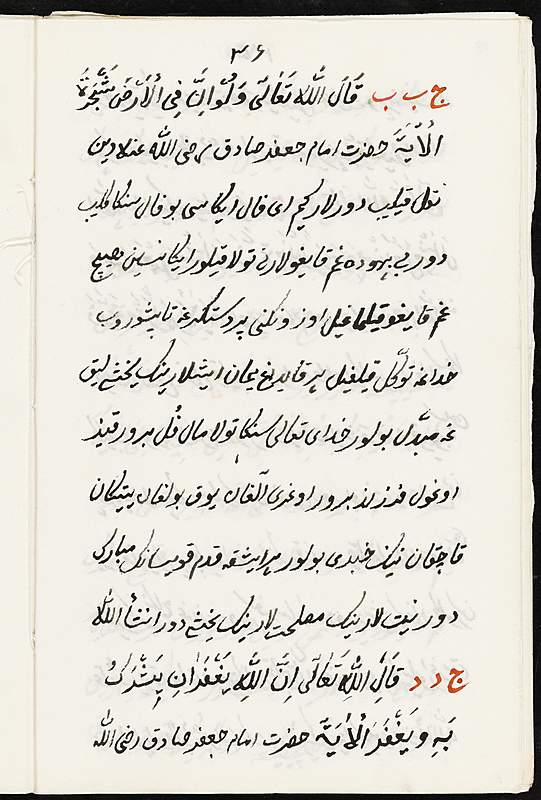 ۳۶
ج ب ب قَالَ اللّٰه تَعَالَى وَلَوْ اَنَّ فِي الْاَرْضَ شَجَرَةٌ
اَلْاٰيَةَ حضرت امام جعفر صادق رضی اللّٰه عنلادین
نقل قیلیب دورلار کیم ای فال ایکاسی بو فال سنکا کلیب
دور بی بیهوده غم قایغولارنی تولا قیلور ایکانسین هیچ
غم قایغو قیلماغیل اوزونکنی پردستکیرغه تاپشوروب
خداغه توکّل قیلغیل هر قایداغ یمان ایشلارینک یخشی لیق
غه مبدّل بولور خدای تعالی سنکا تولا مال قُل برور قیز
اوغول فرزند برور اوغری آلغان یوق بولغان یتکان
قاچقان نینک خبری بولور هر ایشقه قدم قویسانک مبارک
دور نیت لارینک مصلحت لارینک یخشی دور انشأ اللّٰه
ج د د قَالَ اللّٰهِ تَعَالَى اِنَّ اللّٰهِ يَغْفَرَانِ يَشْرَكُ
بَهِ وَيَغْفَرَ اَلْاٰيَةَ حضرت امام جعفر صادق رضی اللّٰه